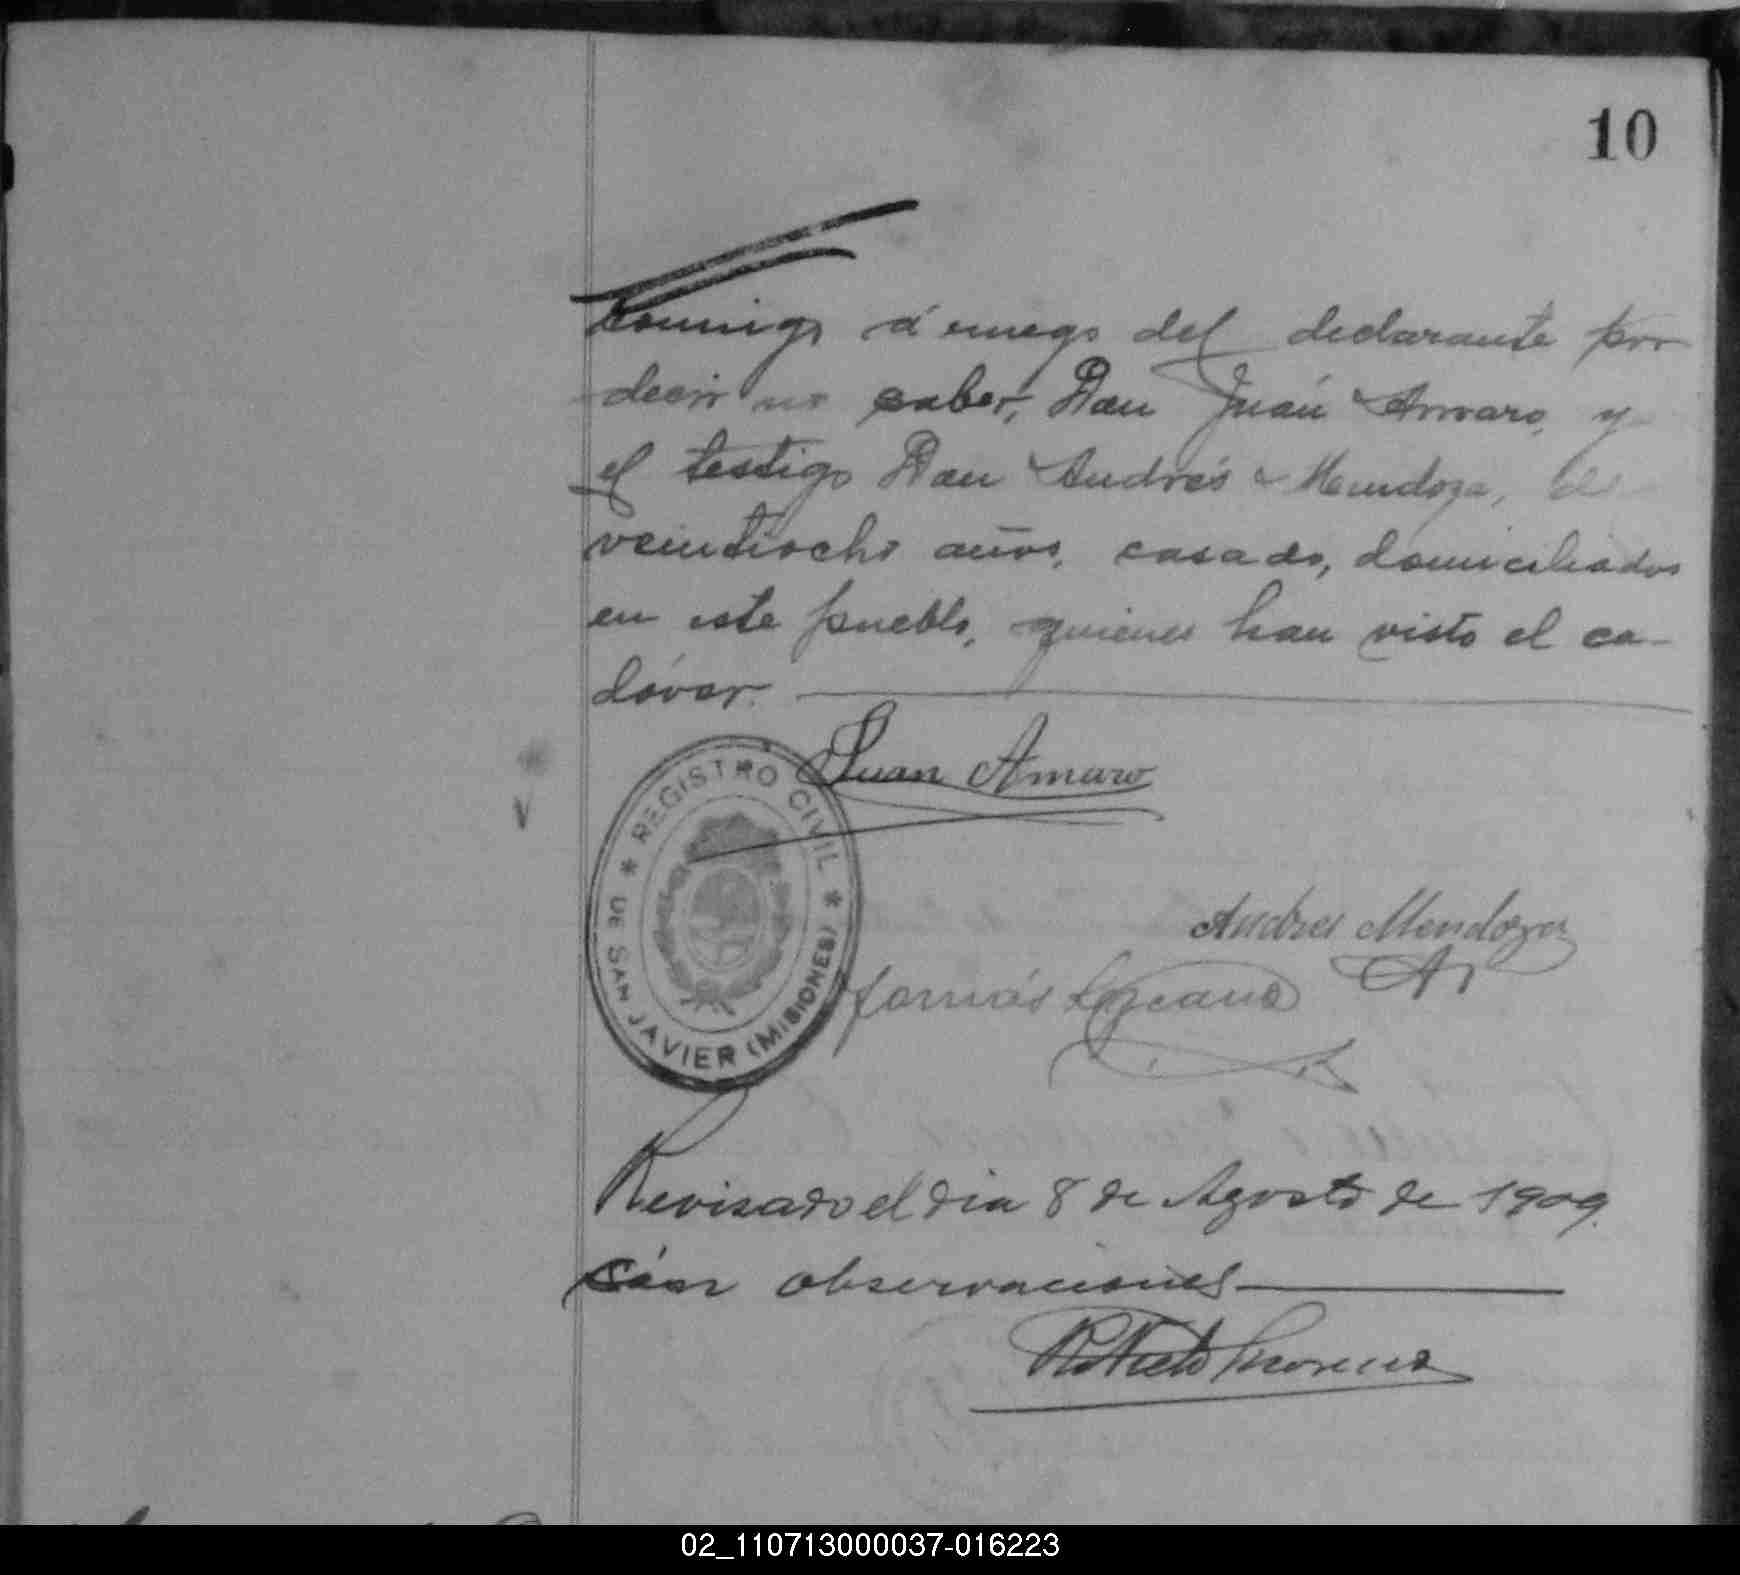 10
conmigo á ruego del declarante por
decir no saber, Don Juán Amaro, y
el testigo Don Andrés Mendoza, de
veintiocho años, casado, domiciliados
en este pueblo, quienes han visto el ca-
dáver.
Juan Amaro
* REGISTRO CIVIL *
DE SAN JAVIER (MISIONES)
Andres Mendoza
Tomás Lozcano
Revisado el dia 8 de Agosto de 1909.
observaciones
Moreno
02_110713000037-016223